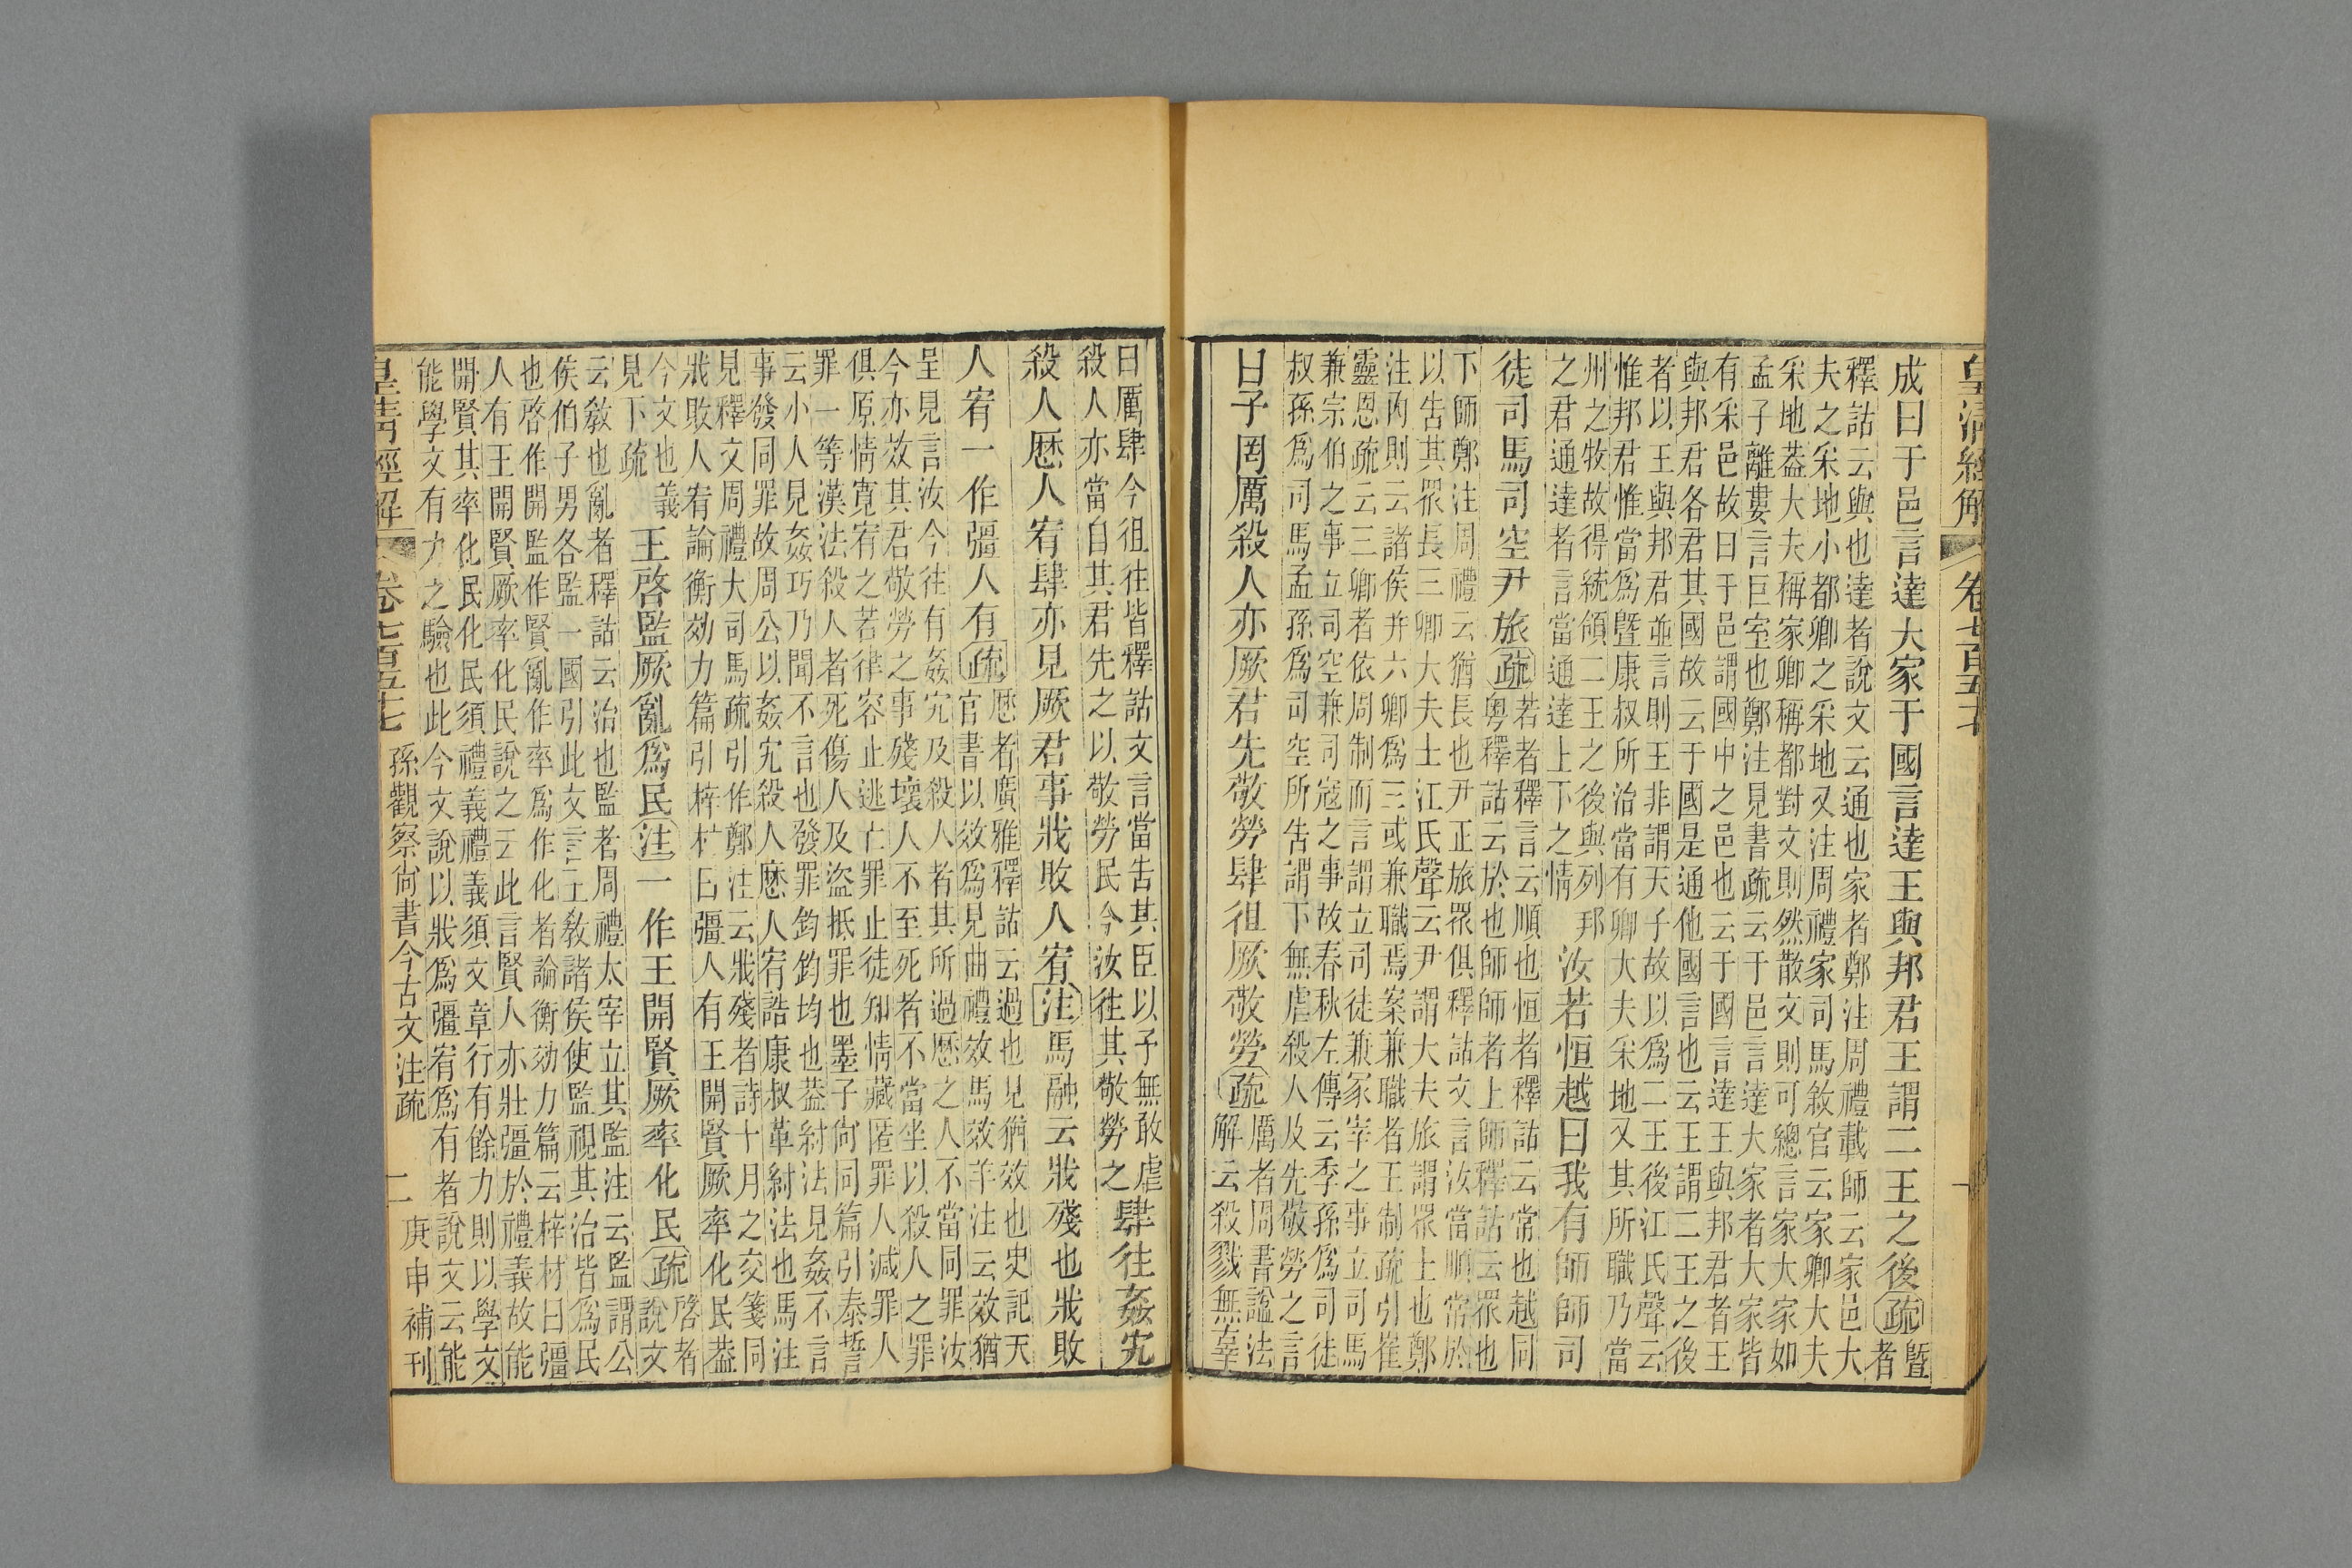 皇清經解 卷七百五十七
成曰于邑言達大家于國言達王與邦君王謂二王之後疏曁
者
釋詁云與也達者說文云通也家者鄭注周禮載師云家邑大
夫之采地小都卿之采地又注周禮家司馬敘官云家卿大夫
采地葢大夫稱家卿稱都對文則然散文則可總言家大家如
孟子離婁言巨室也鄭注見書疏云于邑言達大家者大家皆
有采邑故曰于邑謂國中之邑也云于國言達王與邦君者王
與邦君各君其國故云于國是通他國言也云王謂二王之後
者以王與邦君並言則王非謂天子故以爲二王後江氏聲云
惟邦君惟當爲曁康叔所治當有卿大夫采地又其所職乃當
州之牧故得統領二王之後與列邦
之君通達者言當通達上下之情
汝若恒越曰我有師師司
徒司馬司空尹旅疏若者釋言云順也恒者釋詁云常也越同
粵釋詁云於也師師者上師釋詁云眾也
下師鄭注周禮云猶長也尹正旅眾俱釋詁文言汝當順常於
以告其眾長三卿大夫士江氏聲云尹謂大夫旅謂眾士也鄭
注內則云諸侯并六卿爲三或兼職焉案兼職者王制疏引崔
靈恩疏云三卿者依周制而言謂立司徒兼冢宰之事立司馬
兼宗伯之事立司空兼司寇之事故春秋左傳云季孫爲司徒
叔孫爲司馬孟孫爲司空所告謂下無虐殺人及先敬勞之言
曰予罔厲殺人亦厥君先敬勞肆徂厥敬勞疏厲者周書諡法
解云殺戮無辜
曰厲肆今徂往皆釋詁文言當告其臣以予無敢虐
殺人亦當自其君先之以敬勞民今汝徃其敬勞之
肆往姦宄
殺人歷人宥肆亦見厥君事戕敗人宥注馬融云戕殘也戕敗
人宥一作彊人有疏歷者廣雅釋詁云過也見猶效也史記天
官書以效爲見曲禮效馬效羊注云效猶
呈見言汝今往有姦宄及殺人者其所過歷之人不當同罪汝
今亦效其君敬勞之事殘壞人不至死者不當坐以殺人之罪
俱原情寬宥之若律容止逃亡罪止徒知情藏匿罪人減罪人
罪一等漢法殺人者死傷人及盜抵罪也墨子尙同篇引泰誓
云小人見姦巧乃聞不言也發罪鈞鈞均也葢紂法見姦不言
事發同罪故周公以姦宄殺人歷人宥誥康叔革紂法也馬注
見釋文周禮大司馬疏引作鄭注云戕殘者詩十月之交箋同
戕敗人宥論衡効力篇引梓材曰彊人有王開賢厥率化民葢
今文也義
見下疏
王啓監厥亂爲民注一作王開賢厥率化民疏啓者
說文
云敎也亂者釋詁云治也監者周禮太宰立其監注云監謂公
侯伯子男各監一國引此文言王敎諸侯使監視其治皆爲民
也啓作開監作賢亂作率爲作化者論衡効力篇云梓材曰彊
人有王開賢厥率化民說之云此言賢人亦壯彊於禮義故能
開賢其率化民化民須禮義禮義須文章行有餘力則以學文
能學文有力之驗也此今文說以戕爲彊宥爲有者說文云能
皇清經解 卷七百五十七 孫觀察尙書今古文注疏 二 庚申補刊